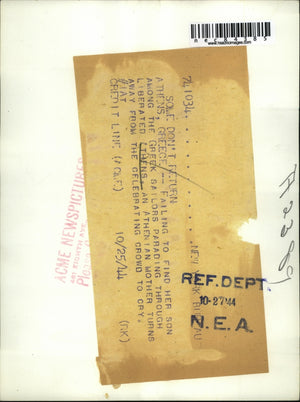 nec84485
www.historicimages.com
741034.......NEW YORK BUREAU
SOME DON'T RETURN
ATHENS, GREECE -- FAILING TO FIND HER SON
AMONG THE GREEK SAILORS PARADING THROUGH
LIBERATED ATHENS, AN ATHENIAN MOTHER TURNS
AWAY FROM THE CELEBRATING CROWD TO CRY.
CREDIT LINE (ACME) 10/25/44 (DK)
ACME NEWSPICTURES
REF. DEPT.
10-27-44
N.E.A.